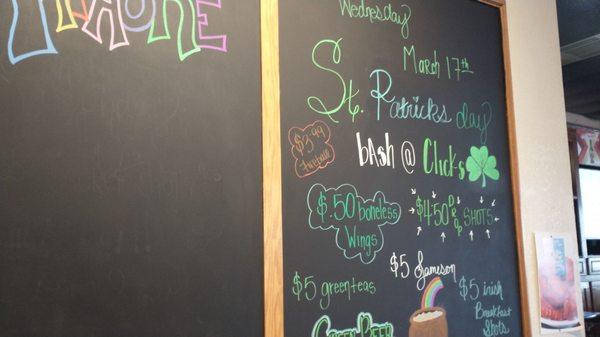 Wednesday
March 17th
St. Patricks day
bAsh @ Click-s
$3.99
Fireball
$.50 Boneless
Wings
$4.50 DROP SHOTS
$5 Jameson
$5 green teas
$5 irish
Breakfast
Shots
GREEN BEER